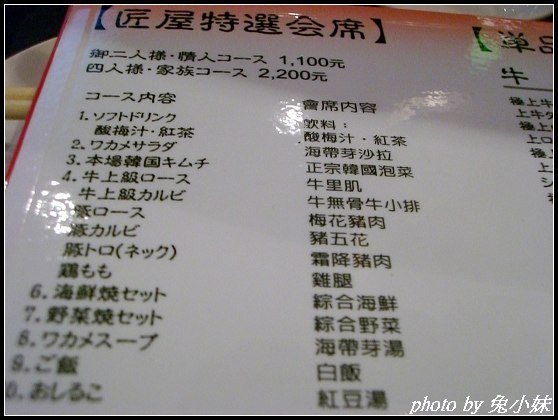 【匠屋特選会席】
御二人様・情人コース 1,100元
四人様・家族コース 2,200元
コース内容
1.ソフトドリンク
酸梅汁・紅茶
2.ワカメサラダ
3.本場韓国キムチ
4.牛上級ロース
牛上級カルビ
豚ロース
豚カルビ
豚トロ(ネック)
鶏もも
6.海鮮焼セット
7.野菜焼セット
8.ワカメスープ
9.ご飯
0.おしるこ
會席内容
飲料：
酸梅汁・紅茶
海帶芽沙拉
正宗韓國泡菜
牛里肌
牛無骨牛小排
梅花豬肉
豬五花
霜降豬肉
雞腿
綜合海鮮
綜合野菜
海帶芽湯
白飯
紅豆湯
【単
牛
極上
上牛
極上
上
photo by 兔小妹